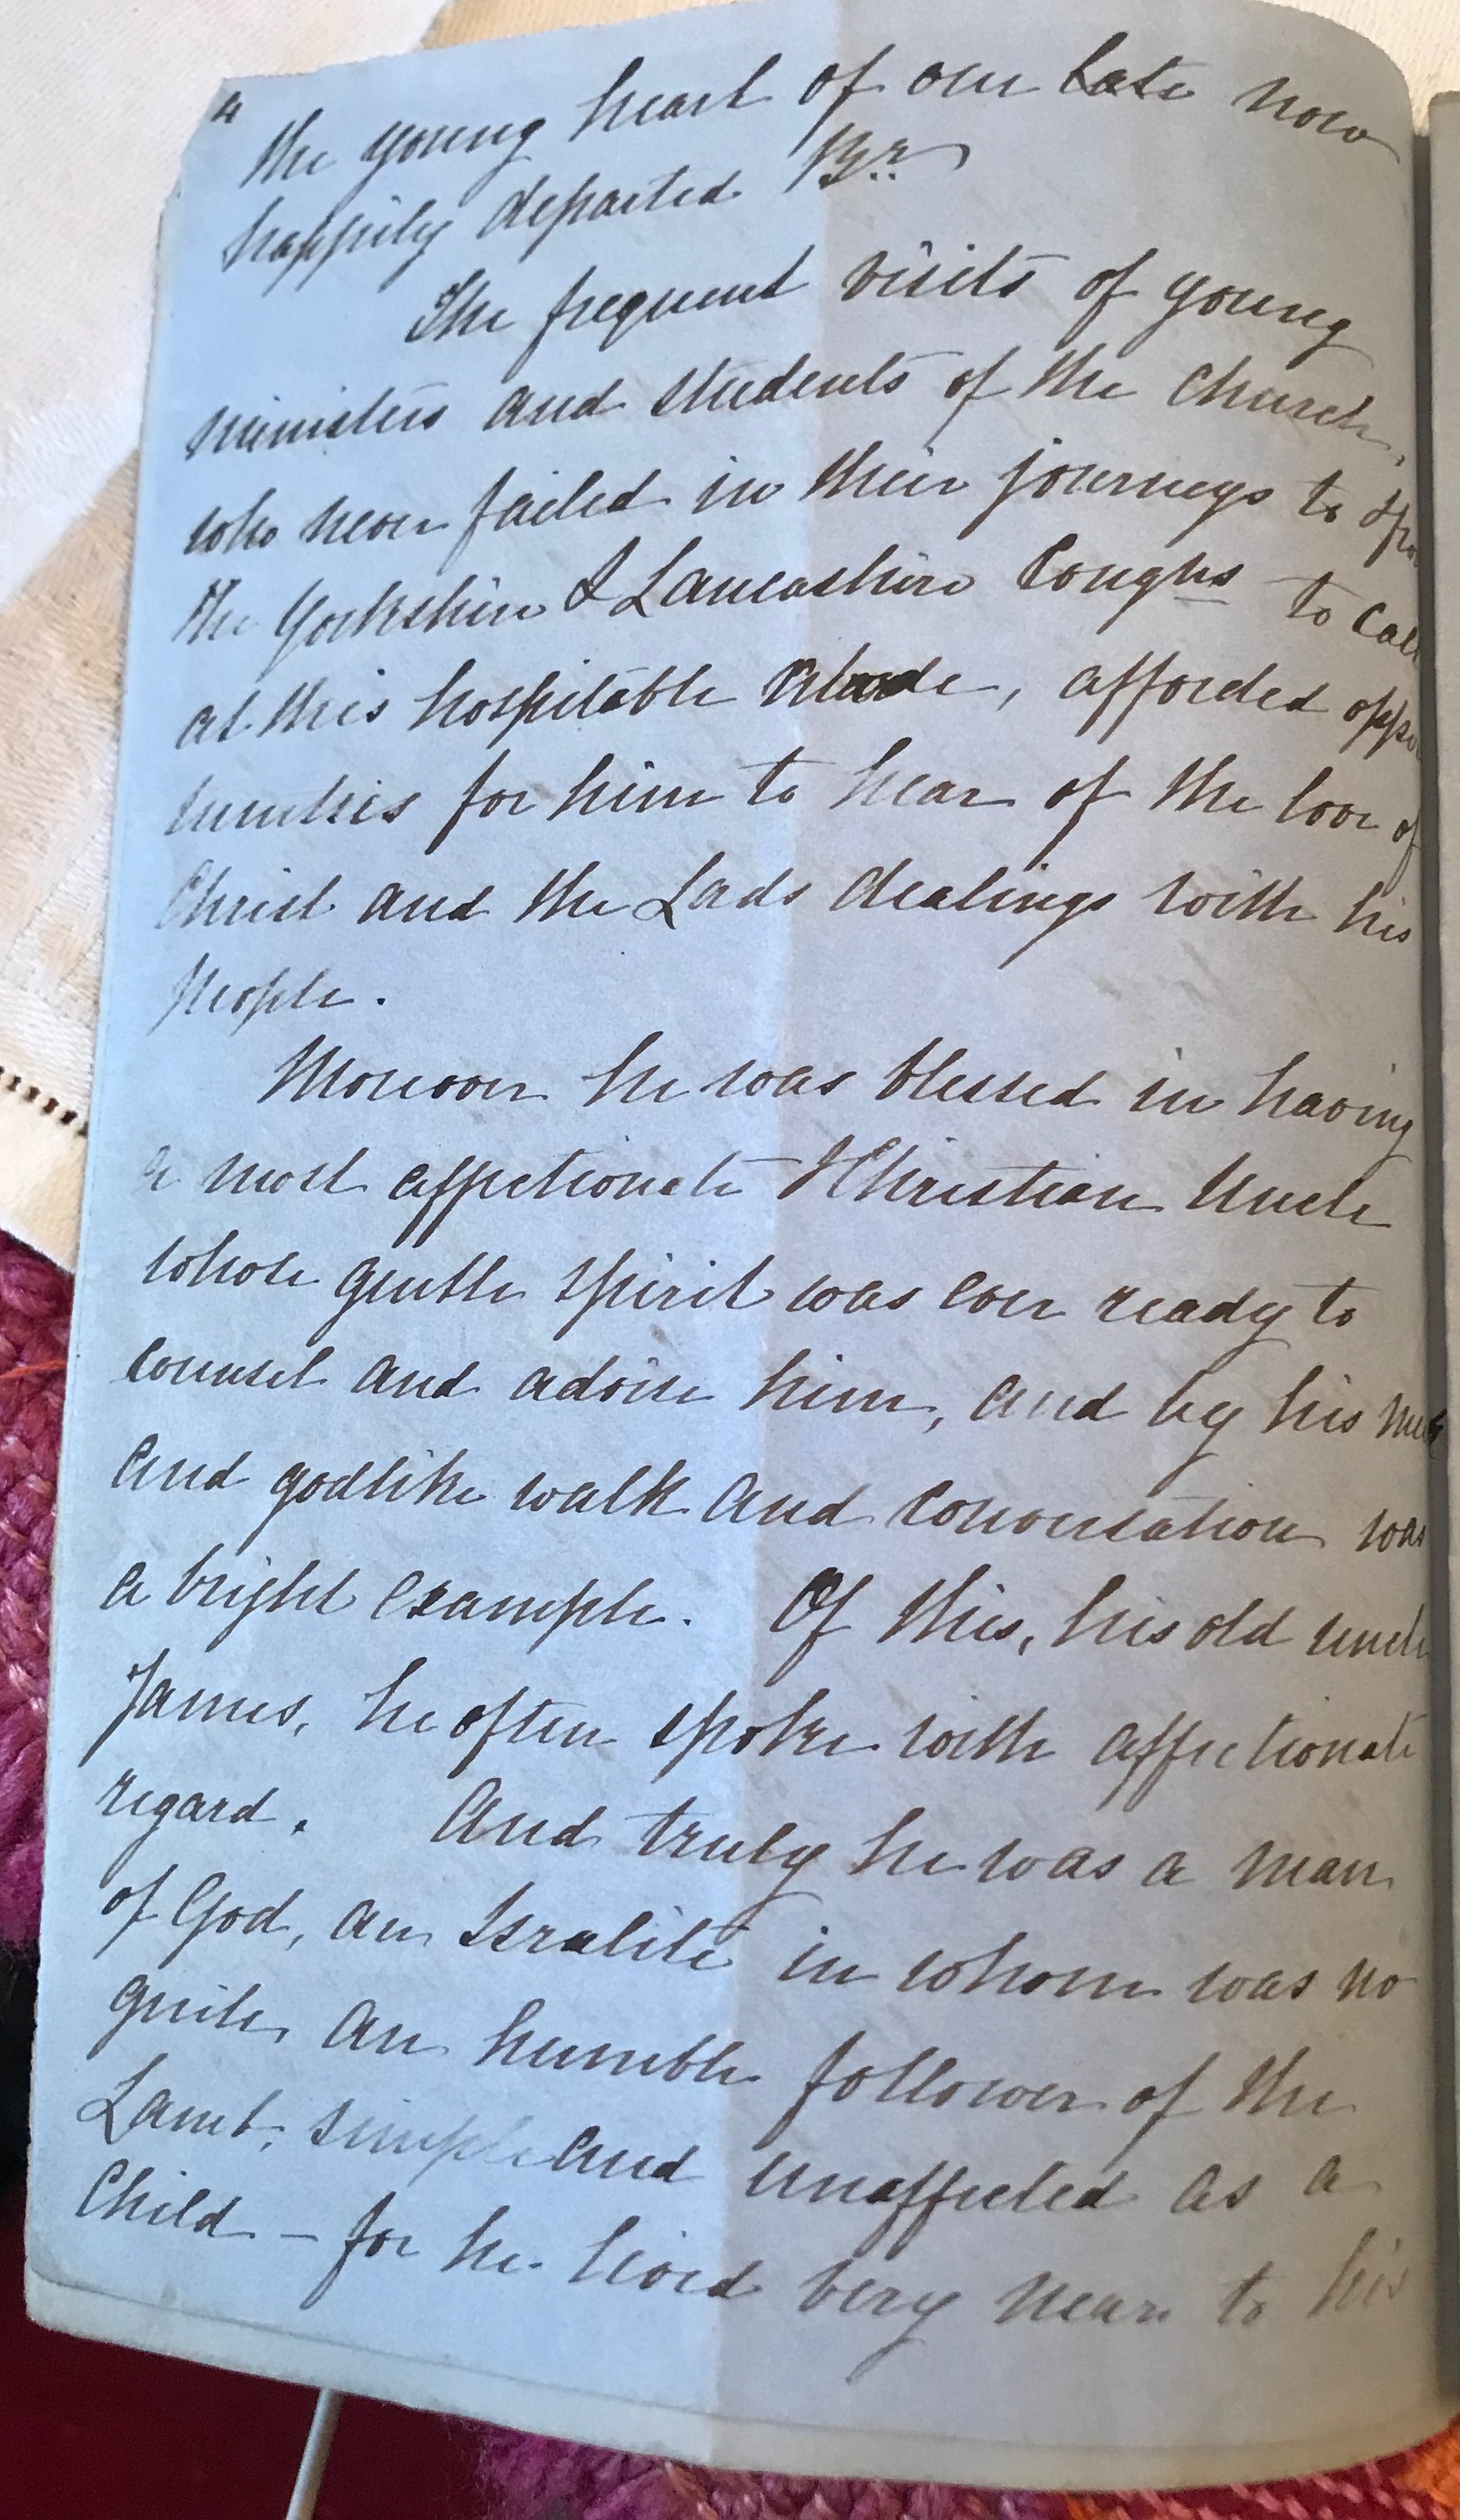 4
the young heart of our late now
happily departed Br.
The frequent visits of young
ministers and students of the Church,
who never failed in their journeys to
the Yorkshire & Lancashire Congns to call
at this hospitable abode, afforded oppor
tunities for him to hear of the love of
Christ and the Lads dealings with his
people.
Moreover he was blessed in having
a most affectionate & Christian Uncle
whose gentle spirit was ever ready to
counsel and advise him, and by his
and godlike walk and conversation was
a bright example. Of this, his old uncle
James, he often spoke with affectionate
regard. And truly he was a man
of God, an Isralite in whom was no
guile, an humble follower of the
Lamb; simple and unaffected as a
Child – for he lived very near to his